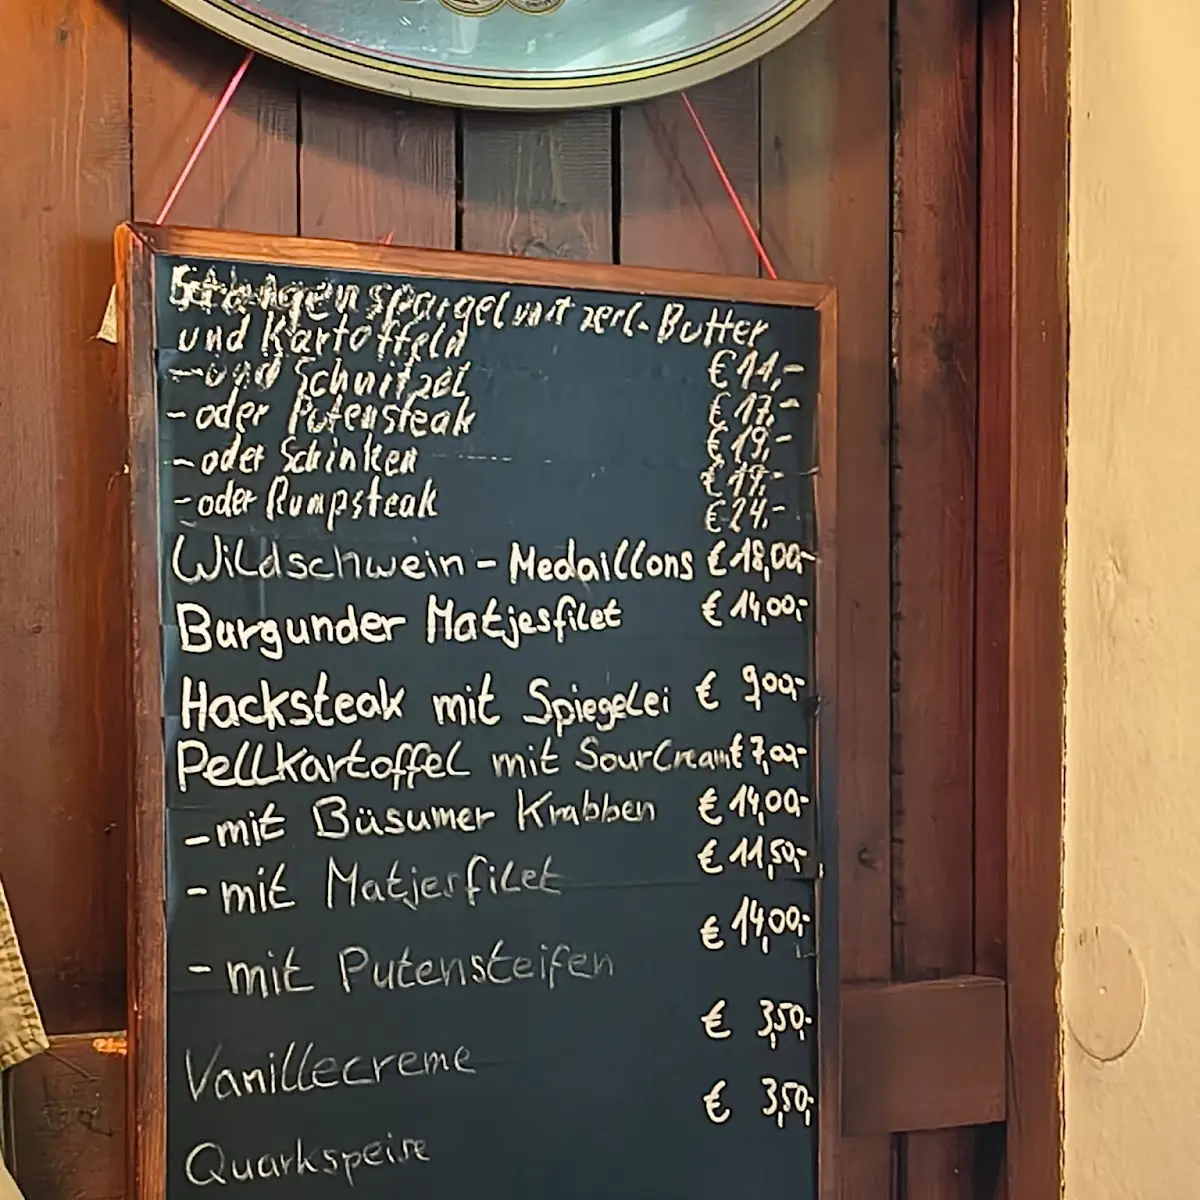 Stangenspargel mit zerl. Butter
und Kartoffeln € 11,-
- und Schnitzel € 17,-
- oder Putensteak € 19,-
- oder Schinken € 19,-
- oder Rumpsteak € 24,-
Wildschwein - Medaillons € 18,00,-
Burgunder Matjesfilet € 14,00,-
Hacksteak mit Spiegelei € 9,00,-
Pellkartoffel mit SourCream € 7,00,-
- mit Büsumer Krabben € 14,00,-
- mit Matjesfilet € 11,50,-
- mit Putensteifen € 14,00,-
Vanillecreme € 3,50,-
Quarkspeise € 3,50,-